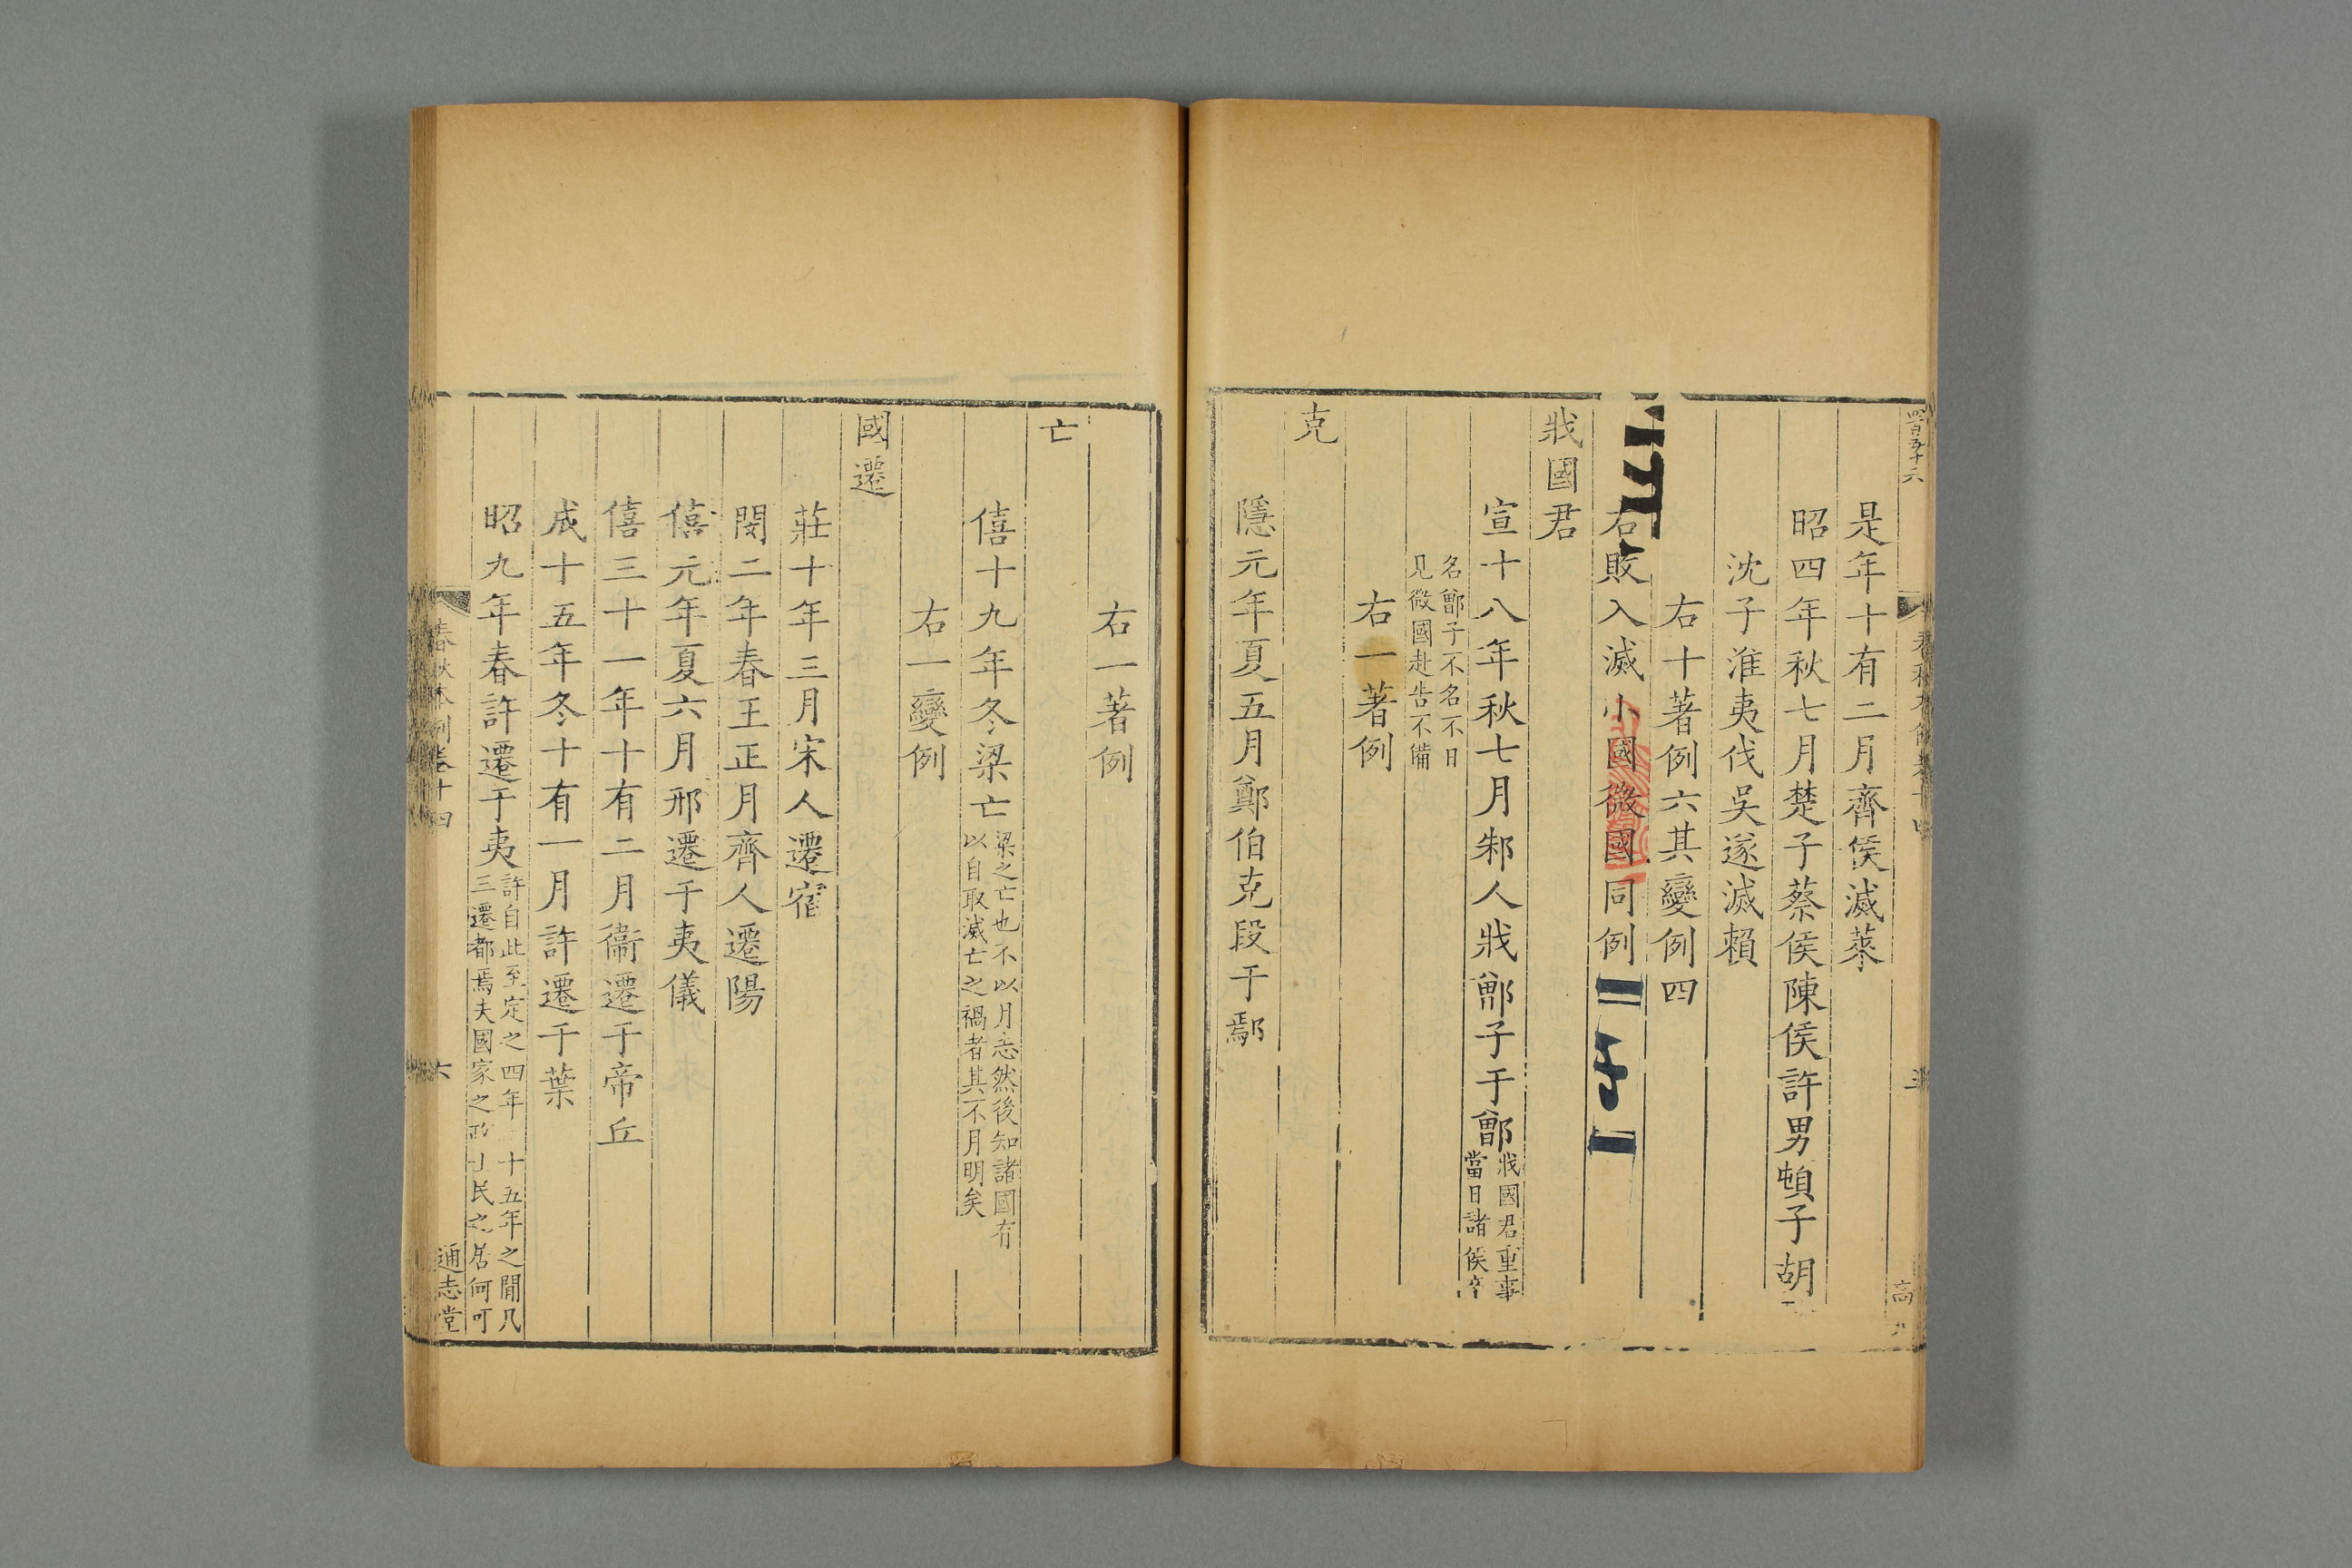 四百五十六
春秋本例卷十四
高
是年十有二月齊侯滅萊
昭四年秋七月楚子蔡侯陳侯許男頓子胡
沈子淮夷伐吳遂滅賴
右十著例六其變例四
右敗入滅小國微國同例
戕國君
宣十八年秋七月邾人戕鄫子于鄫戕國君重事
當日諸侯卒
名鄫子不名不日
見微國赴告不備
右一著例
克
隱元年夏五月鄭伯克段于鄢
右一著例
亡
僖十九年冬梁亡梁之亡也不以月志然後知諸國有
以自取滅亡之禍者其不月明矣
右一變例
國遷
莊十年三月宋人遷宿
閔二年春王正月齊人遷陽
僖元年夏六月邢遷于夷儀
僖三十一年十有二月衞遷于帝丘
成十五年冬十有一月許遷于葉
昭九年春許遷于夷許自此至定之四年二十五年之閒凡
三遷都焉夫國家之民之居何可
春秋本例卷十四
六
通志堂